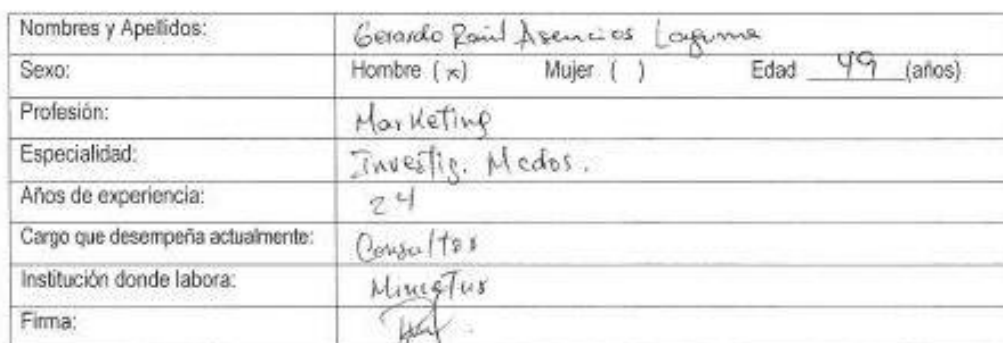 Nombres y Apellidos: Gerardo Raúl Asencios Laguna
Sexo: Hombre (x) Mujer ( ) Edad 49 (años)
Profesión: Marketing
Especialidad: Investig. Mcdos.
Años de experiencia: 24
Cargo que desempeña actualmente: Consultor
Institución donde labora: Mincetur
Firma: